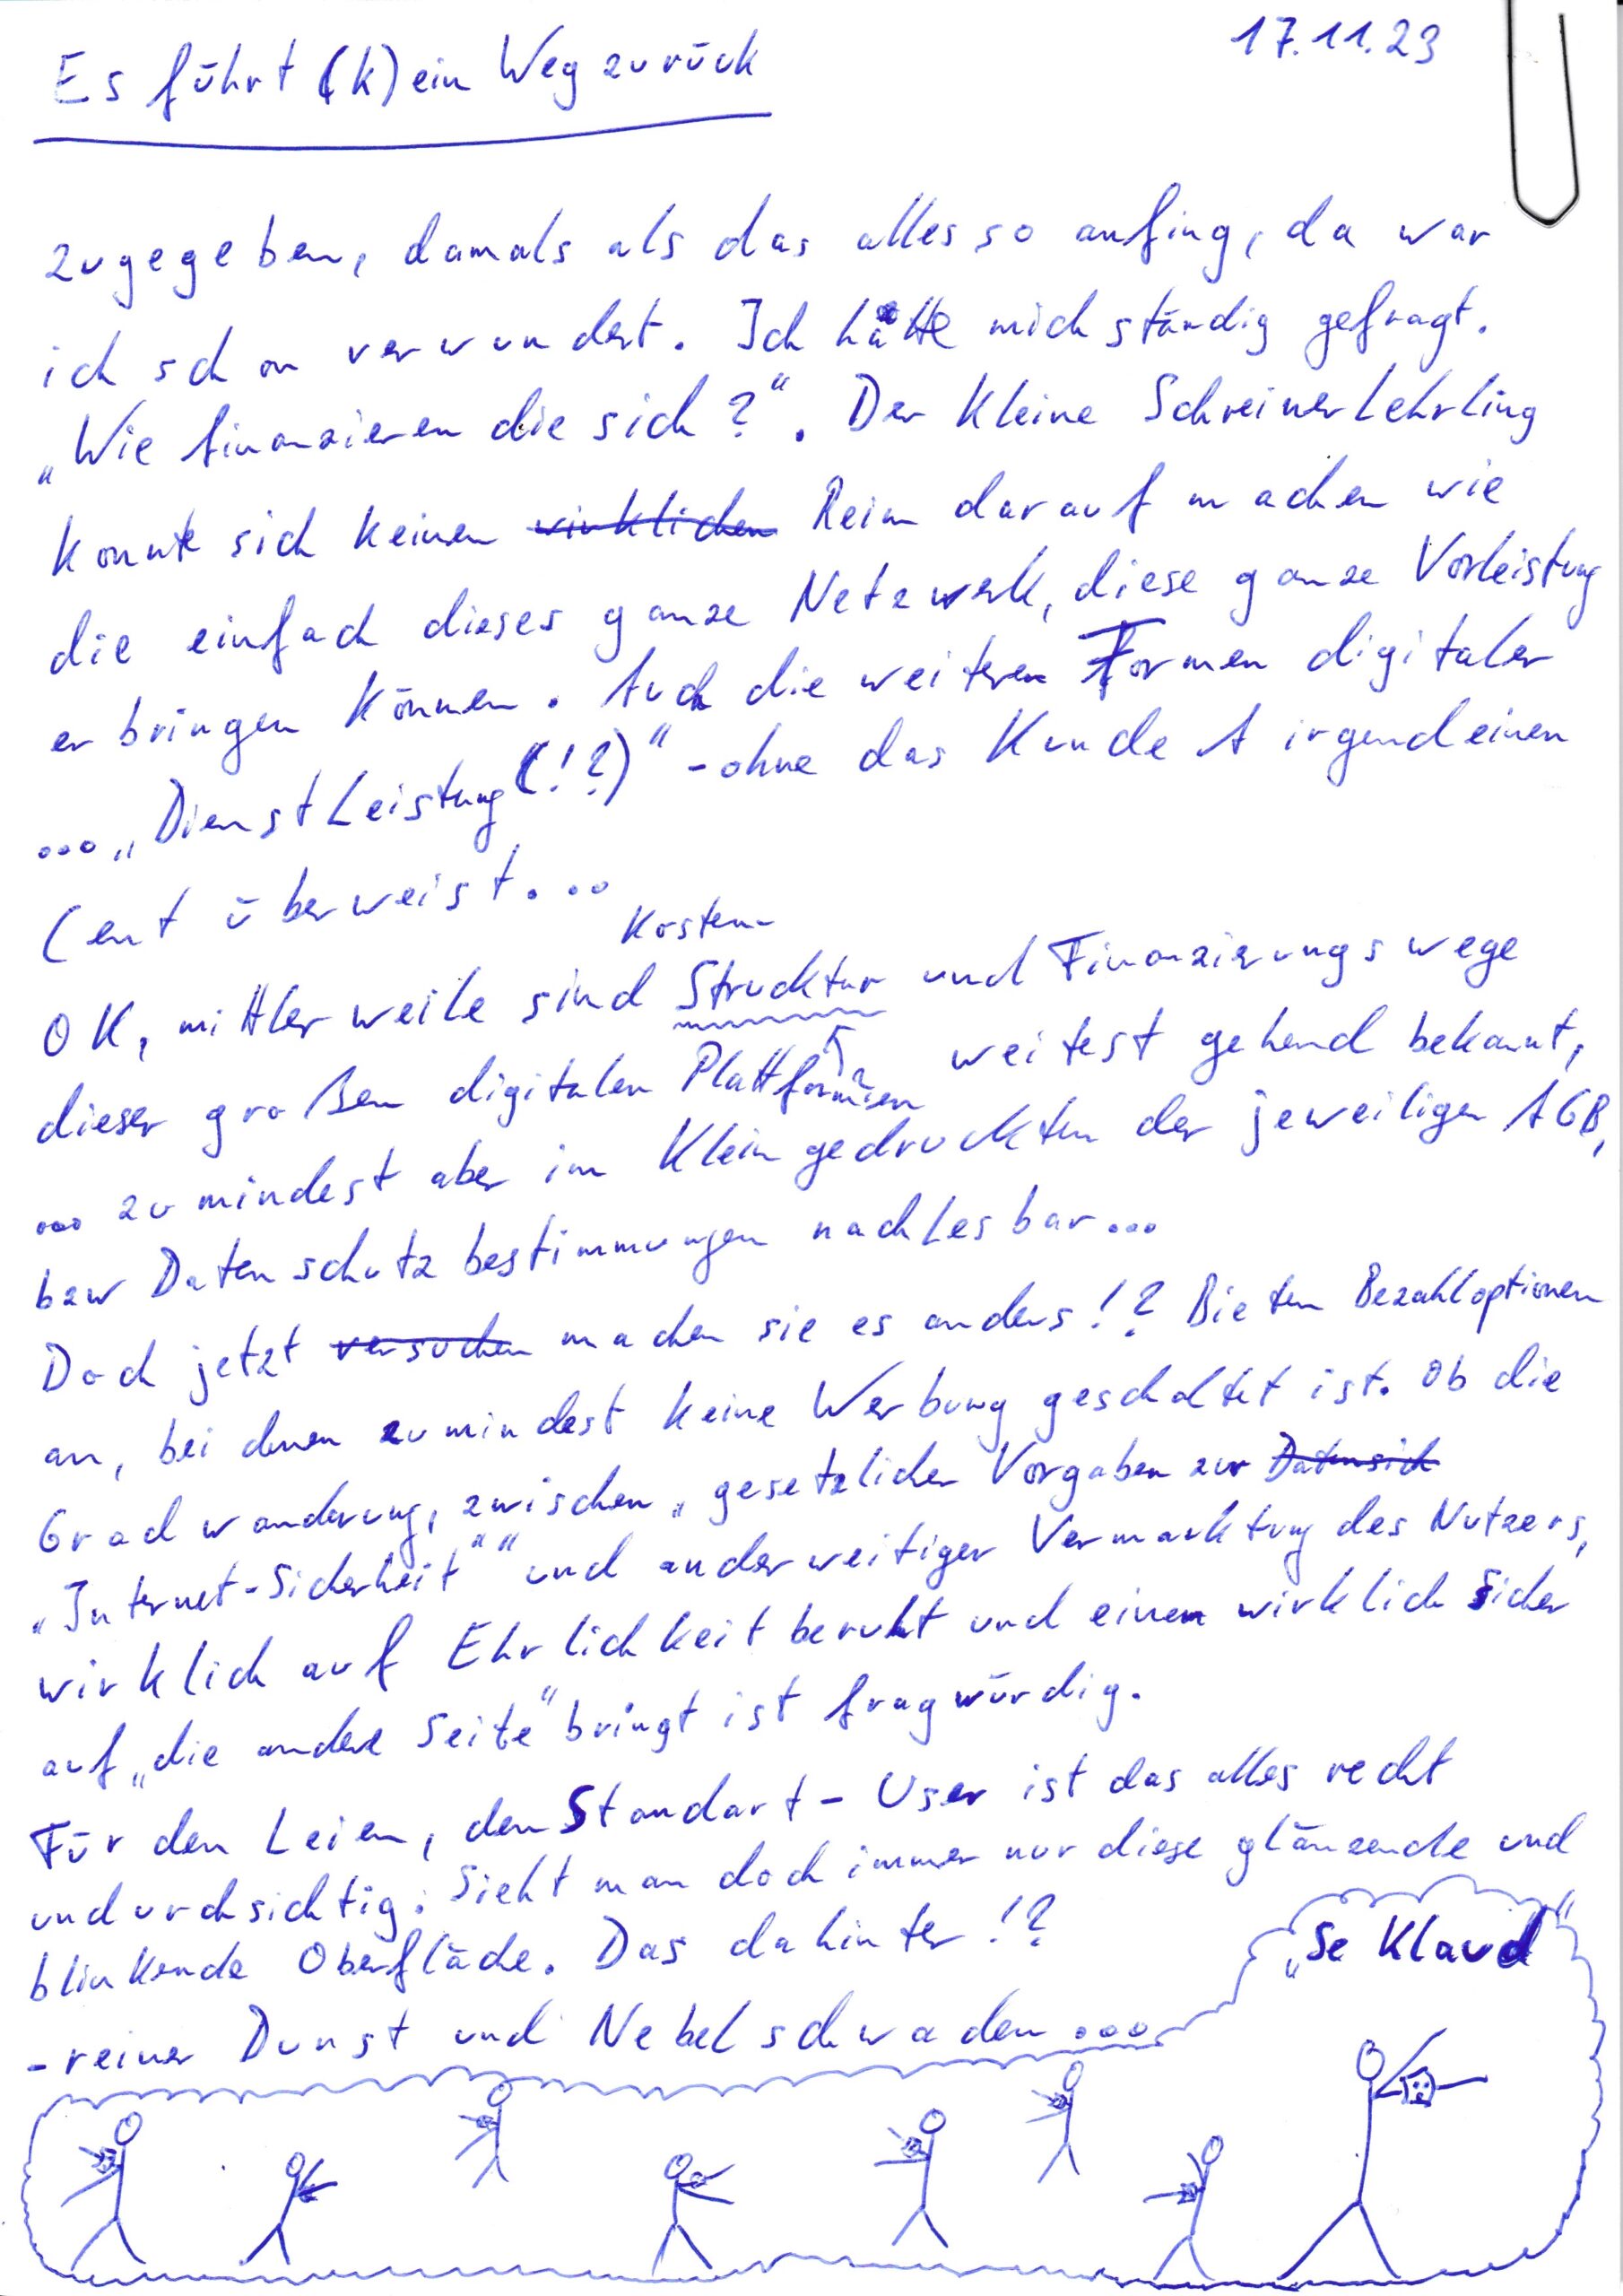 17.11.23
Es führt (k)ein Weg zurück
zugegeben, damals als das alles so anfing, da war
ich schon verwundert. Ich hatte mich ständig gefragt.
„Wie finanzieren die sich?". Der kleine Schreinerlehrling
konnte sich keinen wirklichen Reim darauf machen wie
die einfach dieses ganze Netzwerk, diese ganze Vorleistung
erbringen können. Auch die weiteren Formen digitaler
... „Dienstleistung(!?)" - ohne das Kunde A irgendeinen
Cent überweist...
Kosten-
OK, mittlerweile sind Struktur und Finanzierungswege
dieser großen digitalen Plattformen weitest gehend bekannt,
... zumindest aber im Kleingedruckten der jeweiligen AGB,
bzw Datenschutzbestimmungen nachlesbar...
Doch jetzt versuchen machen sie es anders!? Bieten Bezahloptionen
an, bei denen zumindest keine Werbung geschaltet ist. Ob die
Gradwanderung, zwischen „gesetzlicher Vorgaben zur Datensich
„Internet-Sicherheit"" und anderweitiger Vermarktung des Nutzers,
wirklich auf Ehrlichkeit beruht und einen wirklich sicher
auf „die andere Seite" bringt ist fragwürdig.
Für den Leien, den Standart-User ist das alles recht
undurchsichtig. Sieht man doch immer nur diese glänzende und
blinkende Oberfläche. Das dahinter!?
- reiner Dunst und Nebelschwaden...
„Se Klaud"